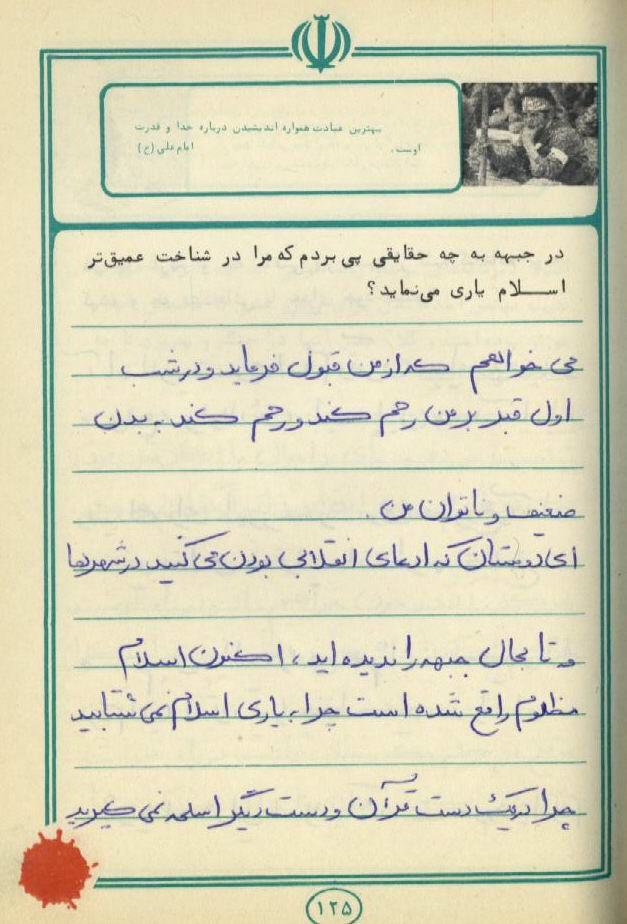 بهترین عبادت همواره اندیشیدن درباره خدا و قدرت
اوست. امام علی (ع)
در جبهه به چه حقایقی پی بردم که مرا در شناخت عمیق‌تر
اسلام یاری می‌نماید؟
می خواهم که از من قبول فرماید و در شب
اول قبر بر من رحم کند و رحم کند به بدن
ضعیف و ناتوان من
ای دوستان که ادعای انقلابی بودن می کنید در شهرها
و تا بحال جبهه را ندیده اید، اکنون اسلام
مظلوم واقع شده است چرا به یاری اسلام نمی شتابید
چرا در یک دست قرآن و دست دیگر اسلحه نمی گیرید
۱۲۵